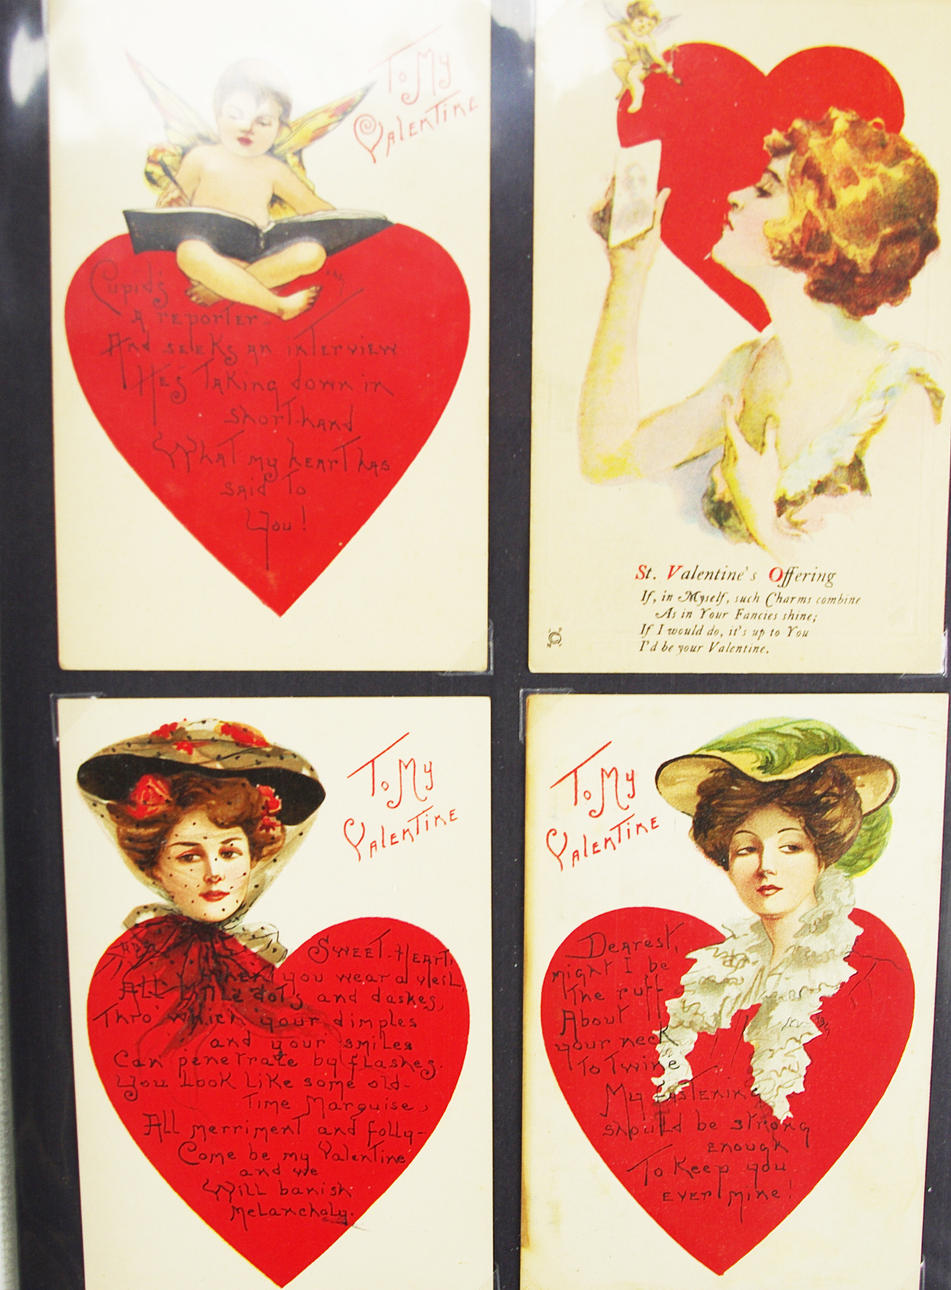 To My
Valentine
Cupid's
A reporter
And seeks an interview
He's Taking down in
shorthand
What my heart has
said To
You!
St. Valentine's Offering
If, in Myself, such Charms combine
As in Your Fancies shine;
If I would do, it's up to You
I'd be your Valentine.
To My
Valentine
Sweet-Heart,
when you wear a veil
All little dots and dashes,
Thro' which your dimples
and your smiles
Can penetrate by flashes.
You Look Like some old-
Time Marquise,
All merriment and folly-
Come be my Valentine
and we
Will banish
Melancholy.
To My
Valentine
Dearest,
might I be
the ruff
About
your neck
To Twine
My fastening
should be strong
enough
To Keep you
ever mine!